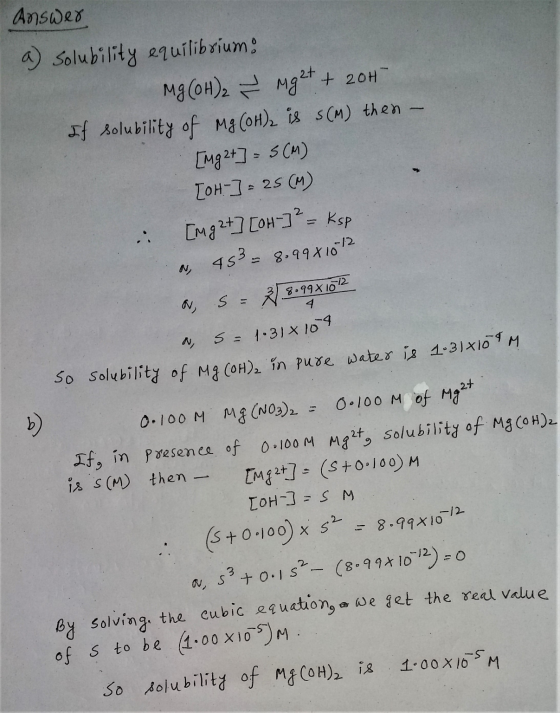 Answer
a) Solubility equilibrium:
Mg(OH)₂ ⇌ Mg²⁺ + 2OH⁻
If solubility of Mg(OH)₂ is s(M) then —
[Mg²⁺] = S(M)
[OH⁻] = 2S (M)
∴ [Mg²⁺][OH⁻]² = Ksp
or, 4S³ = 8.99×10⁻¹²
or, S = ∛(8.99×10⁻¹²/4)
or, S = 1.31×10⁻⁴
So solubility of Mg(OH)₂ in pure water is 1.31×10⁻⁴ M
b) 0.100 M Mg(NO₃)₂ = 0.100 M of Mg²⁺
If, in presence of 0.100M Mg²⁺, solubility of Mg(OH)₂
is s(M) then — [Mg²⁺] = (S+0.100) M
[OH⁻] = S M
∴ (S+0.100) × S² = 8.99×10⁻¹²
or, S³ + 0.1S² − (8.99×10⁻¹²) = 0
By solving the cubic equation, we get the real value
of s to be (1.00×10⁻⁵)M.
So solubility of Mg(OH)₂ is 1.00×10⁻⁵ M